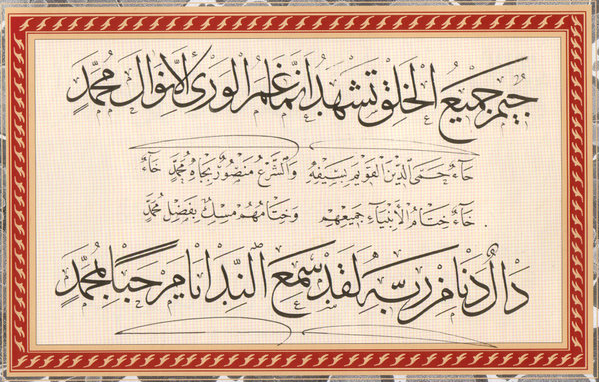 جِيمٌ جَمِيعُ الخَلْقِ تَشْهَدُ أَنَّمَا غَمَرَ الوَرَى إلا نوَالُ مُحَمَّدٍ
حَاءٌ حَمَى الدِّينَ القَوِيمَ بِسَيْفِهِ وَالشَّرْعُ مَنْصُورٌ بِجَاهِ مُحَمَّدٍ خَاءٌ
خَاءٌ خِتَامُ الأَنْبِيَاءِ جَمِيعِهِمْ وَخِتَامُهُمْ مِسْكٌ بِفَضْلِ مُحَمَّدٍ
دَالٌ دَنَا مِنْ رَبِّهِ لَقَدْ سَمِعَ النِّدَا مَرْحَبًا بِمُحَمَّدٍ